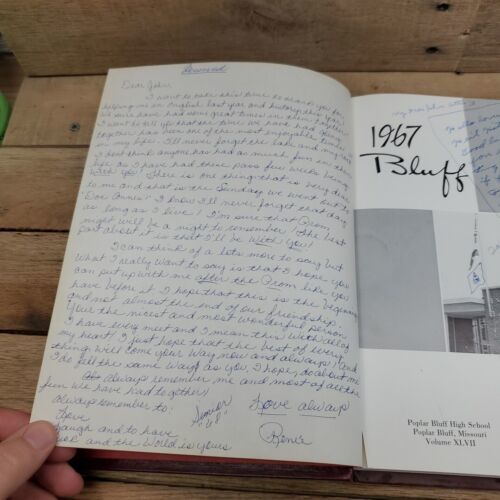 Reserved
Dear John,
I want to take this time to thank you for
helping me in English last year and history this year.
We sure have had some great times in them together.
I want to tell you that the time we have had
together has been one of the most enjoyable times
in my life. I'll never forget the lake and my
I don't think anyone has had as much fun in their
life as I have had these past few weeks being
with you! There is one thing that is very dear
to me and that is the Sunday we went out to
Doe Annes! I know I'll never forget that day
as long as I live! I'm sure that Prom
night will be a night to remember! The best
part about it is that I'll be with you!
I can think of a lots more to say but
What I really want to say is that I hope you
can put up with me after the Prom like you
have before it. I hope that this is the beginning
and not almost the end of our friendship.
Your the nicest and most wonderful person
I have ever met and I mean this with all of
my heart! I just hope that the best of every
thing will come your way now and always! and
I do fell the same way as you, I hope, do about me
always remember me and most of all the
fun we have had together!
always remember to:
Love
Laugh and to have
and the World is yours
Senior
'68'
Love always
Renée
1967
Bluff
Poplar Bluff High School
Poplar Bluff, Missouri
Volume XLVII